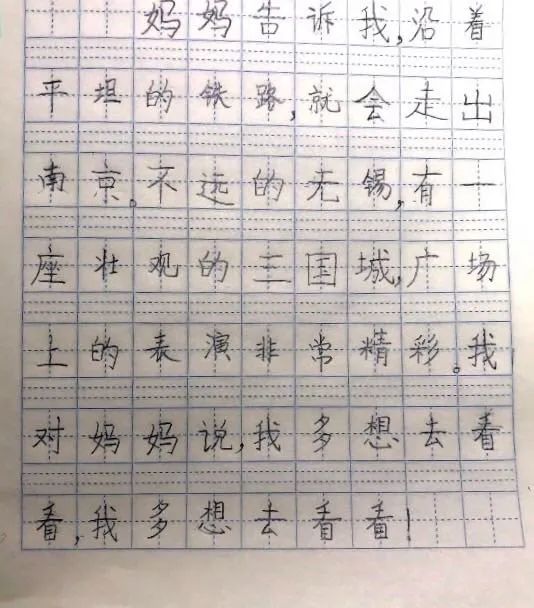 妈妈告诉我,沿着
平坦的铁路,就会走出
南京。不远的无锡,有一
座壮观的三国城,广场
上的表演非常精彩。我
对妈妈说,我多想去看
看,我多想去看看!